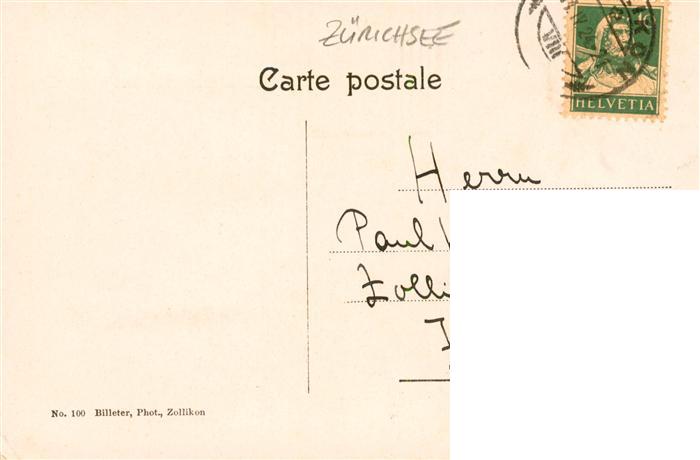 ZÜRICHSEE
Carte postale
HELVETIA
Herrn
Paul
No. 100 Billeter, Phot., Zollikon